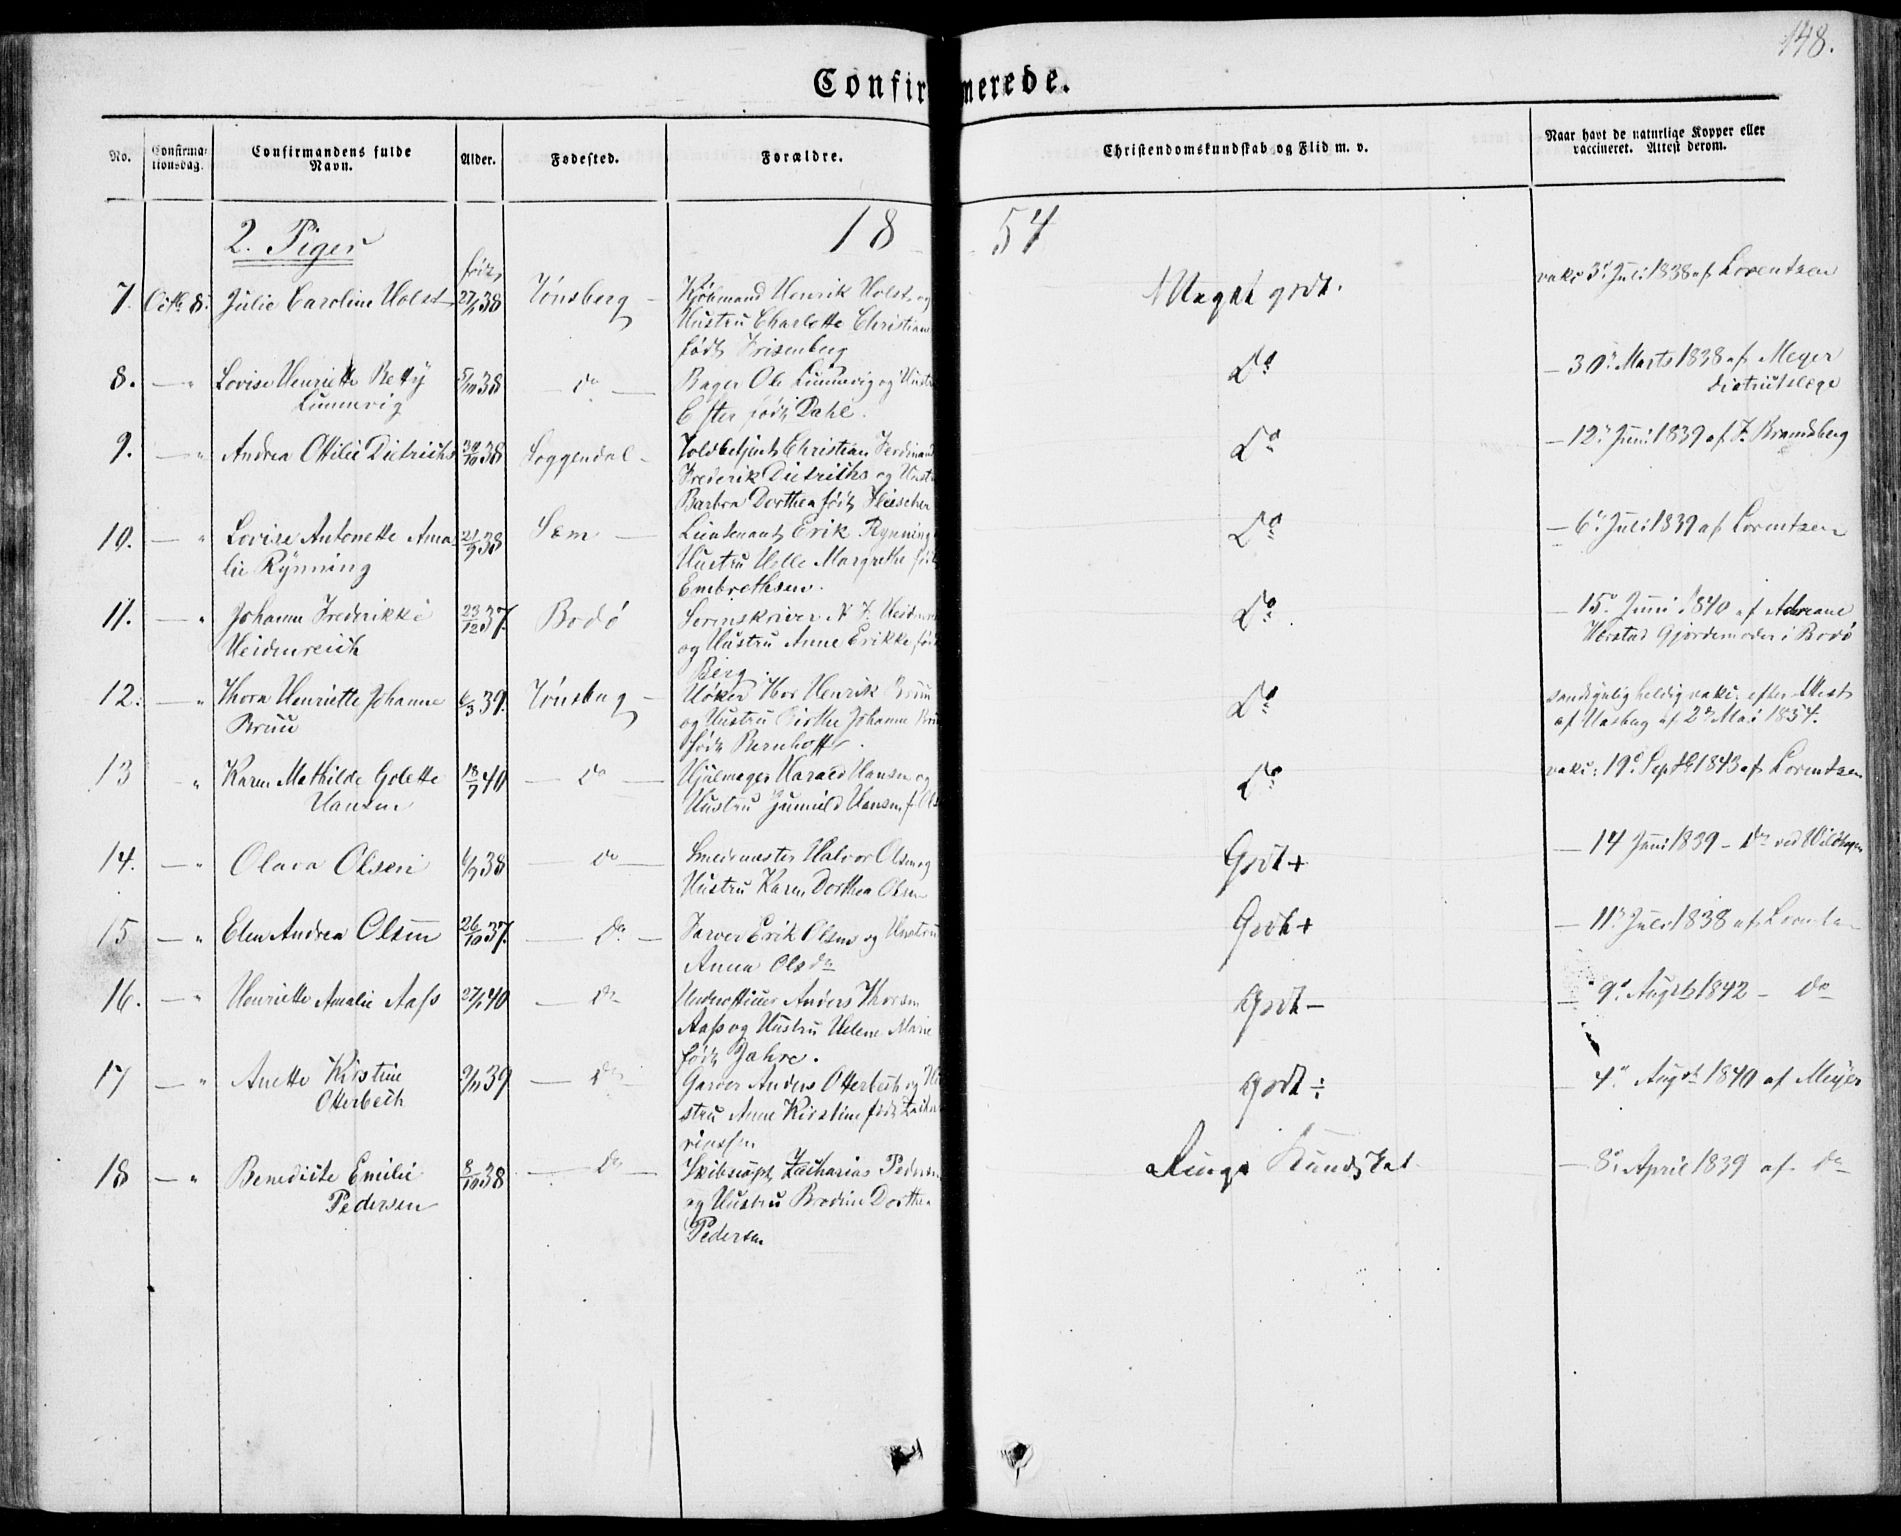 148.
Confirmerede.
No.
Confirma-
tionsdag.
Confirmandens fulde
Navn.
Alder.
Fødested.
Forældre.
Christendomskundskab og Flid m. v.
Naar havt de naturlige Kopper eller
vaccineret. Attest derom.
2. Piger
1854
født
7. Octb. 8. Julie Caroline Holst 38 Tønsberg Kjøbmand Henrik Holst og Meget godt. vakc. 3d Juli 1838 af Lorentzen
Hustru Charlotte Christiane
født Frisenberg
8. — " Lovise Henriette Betty 38 do Bager Ole Linnevig og Hustru Do — 30d Marts 1838 af Meyer
Linnevig Ester født Dahl. Distriktslæge
9. — " Andrea Ottilie Dietrichs 30/10 38 Soggendal Toldbetjent Christian Ferdinand Do — 12d Juni 1839 af
Frederik Dietrichs og Hustru
Barbra Dorthea født Fleischer
10. — " Lovise Antonette Ama- 21/9 38 Sem Lieutenant Erik Rynning Do — 6d Juli 1839 af Lorentzen
lie Rynning Hustru Helle Margrethe født
Embrethsen.
11. — " Johanne Frederikke 23/12 37. Bodø Sorinskriver N. F. Heidenreich Do — 15d Juni 1840 af
Heidenreich og Hustru Anne Erikke født Gjordemoder i Bodø
Berg
12. — " Thora Henriette Johanne 6/3 39. Tønsberg Høker Thor Henrik Bruu Do sandsynlig heldig vakc. efter Attest
Bruu og Hustru Birthe Johanne Bruu af Hasberg af 2d Mai 1854.
født Bernhoft.
13 " Karen Mathilde Golette 18/7 40 — do — Hjulmager Harald Hansen og Do vakc. 19d Septb 1843 af Lorentzen
Hansen Hustru Gunild Hansen f. Ols
14. — " Olava Olsen 6/9 38 — do — Smedmester Halvor Olsen og Godt+ — 14 Juni 1839 — Do ved
Hustru Karen Dorthea Olsen
15 — " Elen Andrea Olsen 26/10 37. — do — Farver Erik Olsen og Hustru Godt+ — 11d Juli 1838 af Lorentzen
Anna Olsdr
16. — " Henriette Amalie Aass 27/1 40 — do Underofficeer Anders Thorsen Godt— — 9d Augst 1842 — do
Aass og Hustru Helene Marie
født Jahre.
17 — " Anette Kirstine 39 — do — Garver Anders Otterbech og Hu- Godt÷ — 4d Augst 1840 af Meyer
Otterbech stru Anne Kirstine født Zacha-
riassen
18 — " Benedicte Emilie 8/10 38 — do — Skibscapt. Zacharias Pedersen Ringe Kundskab — 8d April 1839 af do
Pedersen og Hustru Bredine Dorthea
Pedersen